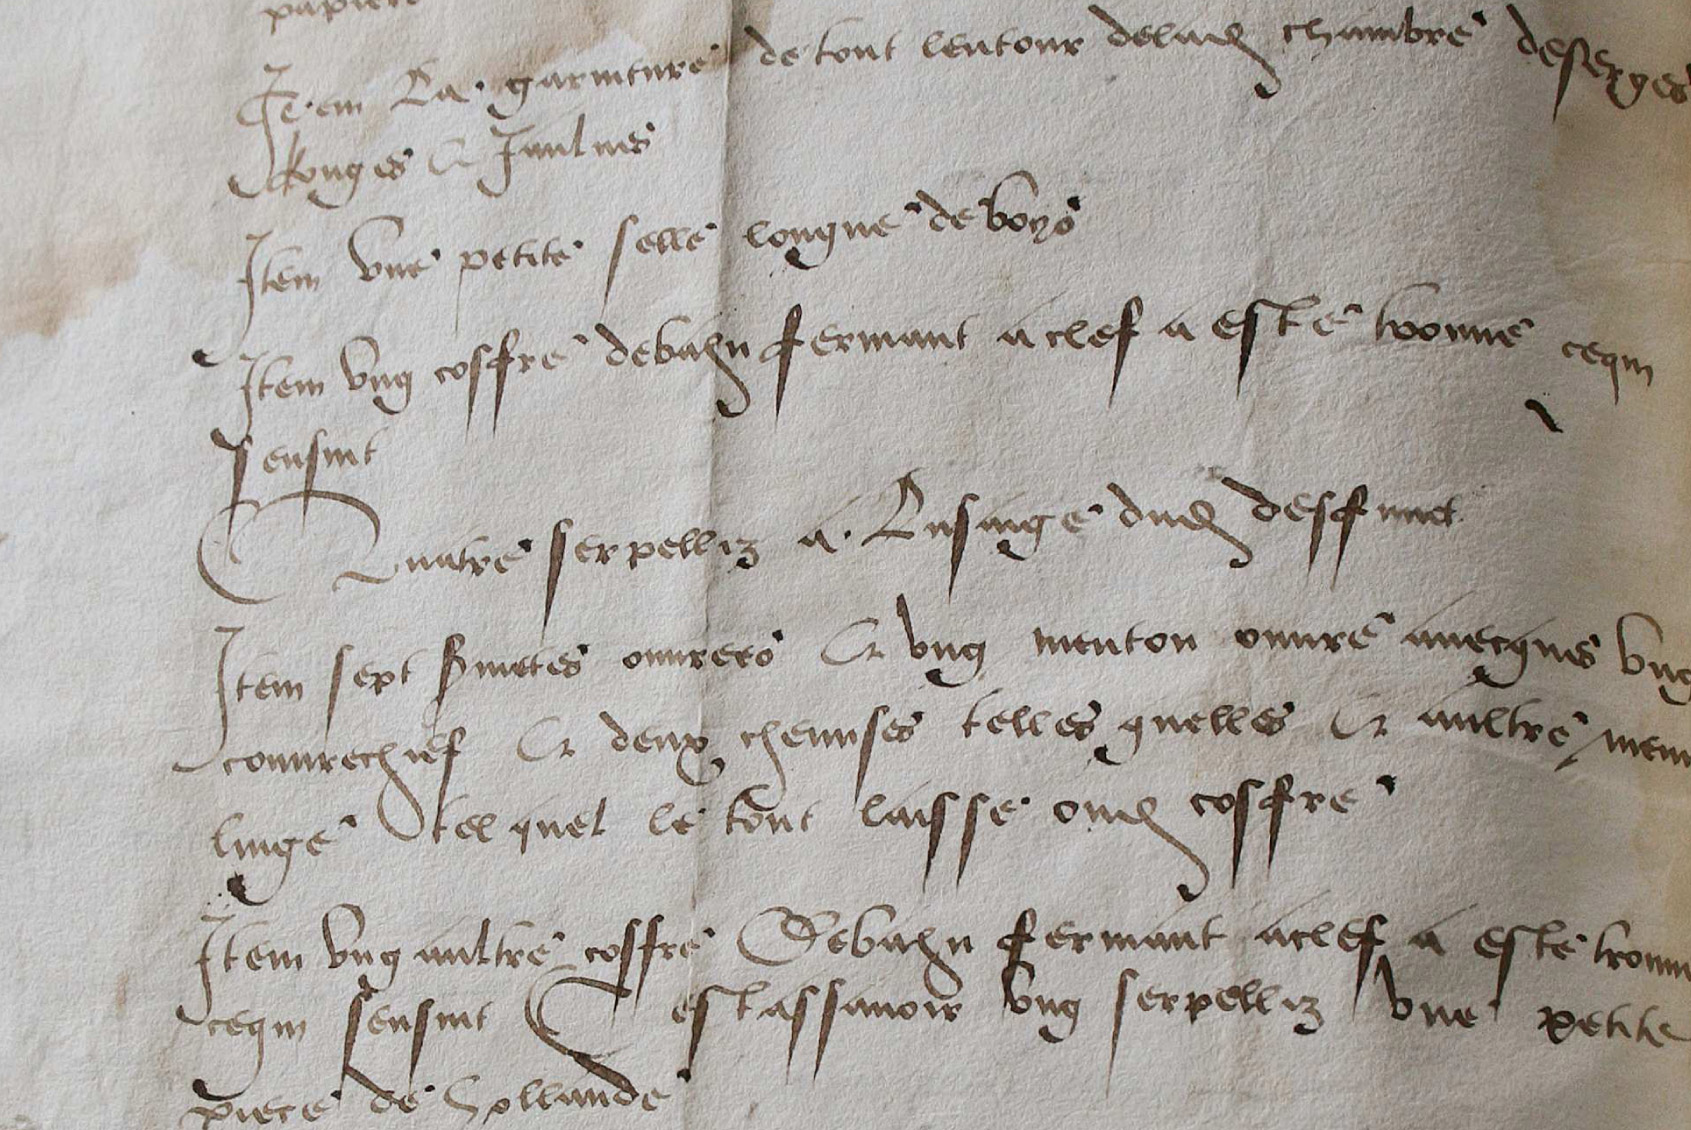 papiere
Item La garniture de tout lentour delad chambre deserges
Rouges & Jaulnes
Item vne petite selle longue de boys
Item vng coffre debahu fermant a clef a este trouue cequi
sensuit
Quatre serpelliz a Lusaige dud deffunct
Item sept seruietes ouurees & vng menton ouure auecques vng
couurechief & deux chemises telles quelles & aultre menu
linge tel quel le tout laisse oud coffre
Item vng aultre coffre Debahu fermant aclef a este trouu
cequi sensuit Cestassauoir vng serpelliz vne petite
piece de hollande